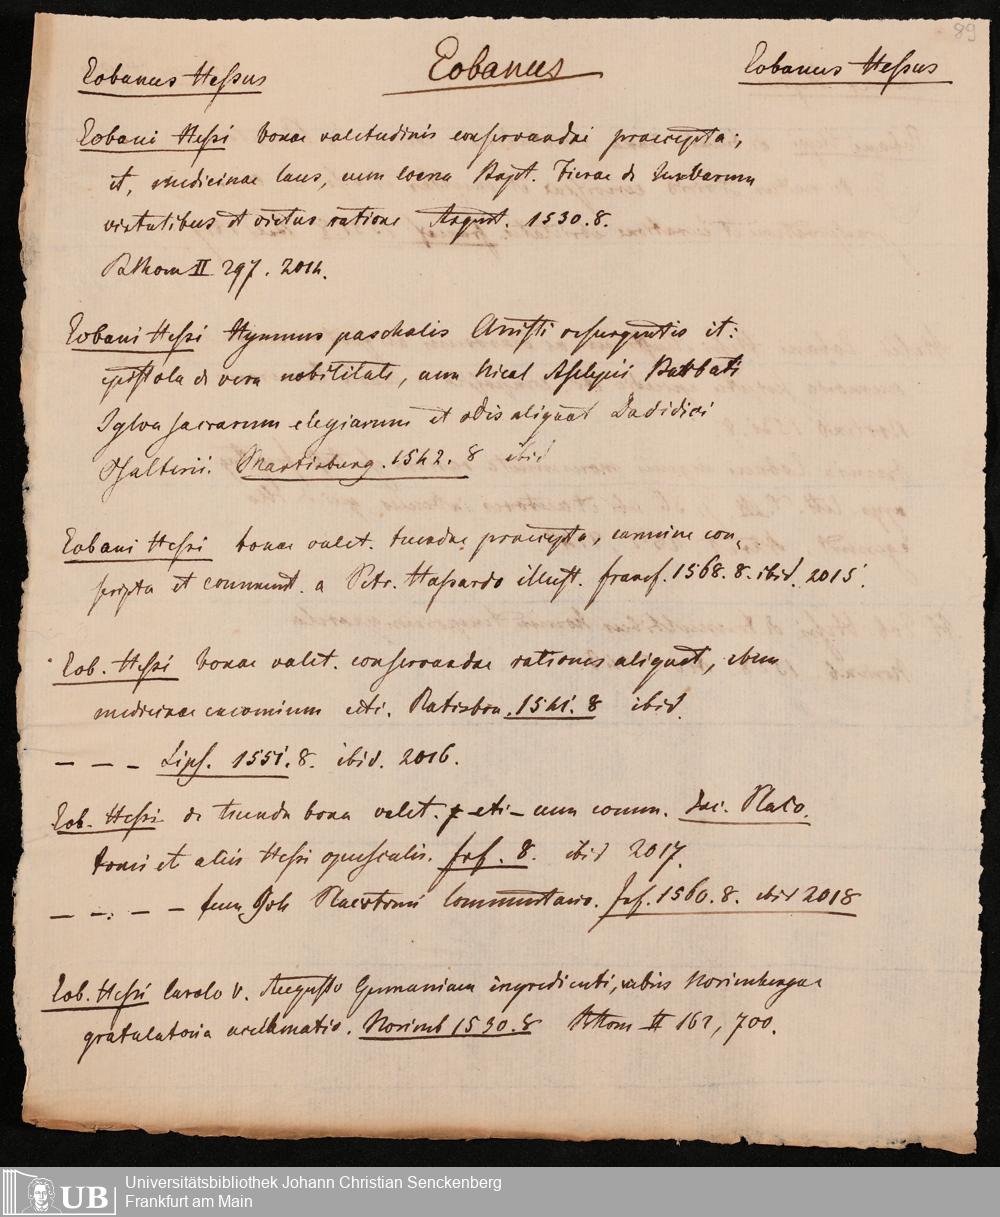 89
Eobanus Heſsus Eobanus Eobanus Heſsus
Eobani Heſsi bonae valetudinis conservandae praecepta;
it, medicinae laus, cum coena Bapt. Fierae de herbarum
virtutibus et victus ratione August. 1530. 8.
B.Thom II 297. 2014.
Eobani Heſsi Hymnus paschalis Christi resurgentis it:
epistola de vera nobilitate, cum Nicol Asclepii Barbati
Sylva sacrarum elegiarum et odis aliquot Davidici
Psalterii. Martisburg. 1542. 8 ibid
Eobani Heſsi bonae valet. tuendae praecepta, carmine con-
scripta et comment. a Petr. Haſsardo illust. francf. 1568. 8. ibid. 2015.
Eob. Heſsi bonae valet. conservandae rationes aliquot, ejusd.
medicinae encomium etc. Ratisbon. 1541. 8 ibid.
– – – Lips. 1551. 8. ibid. 2016.
Eob. Heſsi de tuenda bona valet. etc – cum comm. Placo
tomi et aliis Heſsi opusculis. frf. 8. ibid 2017.
– – : – – cum Joh Placotomi Commentario. Frf. 1560. 8. ibid 2018
Eob. Heſsi Carolo V. Augusto Germaniam ingredienti, urbis Norimbergae
gratulatoria acclamatio. Norimb 1530. 8 B.Thom II 161, 700.
UB Universitätsbibliothek Johann Christian Senckenberg
Frankfurt am Main